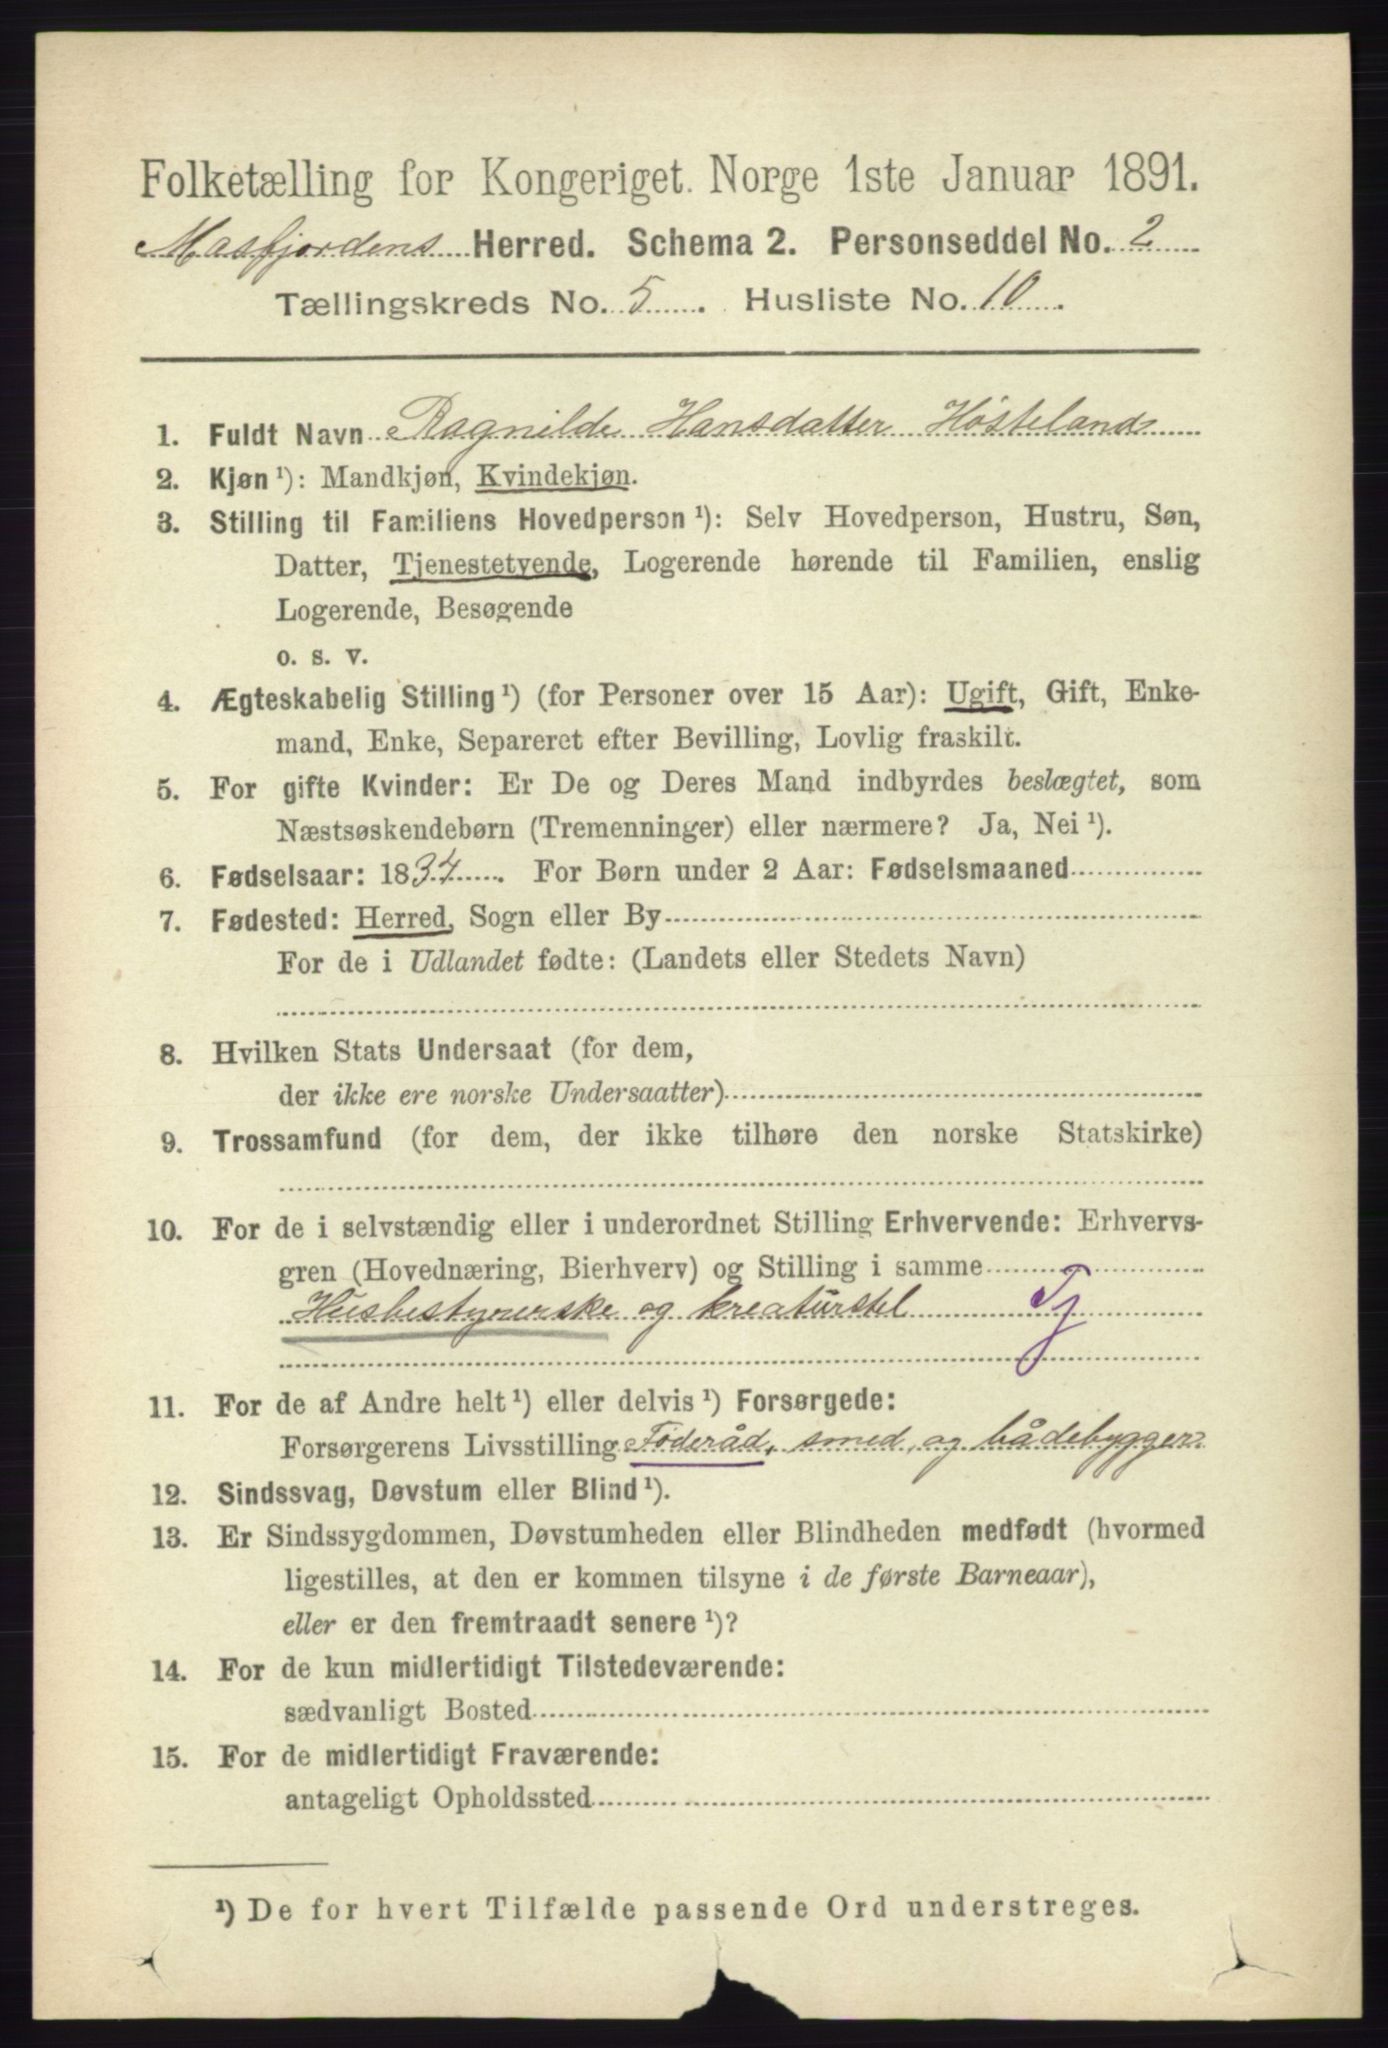 Folketælling for Kongeriget Norge 1ste Januar 1891.
Masfjordens Herred. Schema 2. Personseddel No. 2
Tællingskreds No. 5. Husliste No. 10.
1. Fuldt Navn Ragnilde Hansdatter Høsteland
2. Kjøn ¹): Mandkjøn, Kvindekjøn.
3. Stilling til Familiens Hovedperson ¹): Selv Hovedperson, Hustru, Søn,
Datter, Tjenestetyende, Logerende hørende til Familien, enslig
Logerende, Besøgende
o. s. v.
4. Ægteskabelig Stilling ¹) (for Personer over 15 Aar): Ugift, Gift, Enke-
mand, Enke, Separeret efter Bevilling, Lovlig fraskilt.
5. For gifte Kvinder: Er De og Deres Mand indbyrdes beslægtet, som
Næstsøskendebørn (Tremenninger) eller nærmere? Ja, Nei ¹).
6. Fødselsaar: 1834. For Børn under 2 Aar: Fødselsmaaned
7. Fødested: Herred, Sogn eller By
For de i Udlandet fødte: (Landets eller Stedets Navn)
8. Hvilken Stats Undersaat (for dem,
der ikke ere norske Undersaatter)
9. Trossamfund (for dem, der ikke tilhøre den norske Statskirke)
10. For de i selvstændig eller i underordnet Stilling Erhvervende: Erhvervs-
gren (Hovednæring, Bierhverv) og Stilling i samme
Husbestyrerske og kreaturstel Tj
11. For de af Andre helt ¹) eller delvis ¹) Forsørgede:
Forsørgerens Livsstilling Føderåd, smed, og bådebygger
12. Sindssvag, Døvstum eller Blind ¹).
13. Er Sindssygdommen, Døvstumheden eller Blindheden medfødt (hvormed
ligestilles, at den er kommen tilsyne i de første Barneaar),
eller er den fremtraadt senere ¹)?
14. For de kun midlertidigt Tilstedeværende:
sædvanligt Bosted
15. For de midlertidigt Fraværende:
antageligt Opholdssted
¹) De for hvert Tilfælde passende Ord understreges.